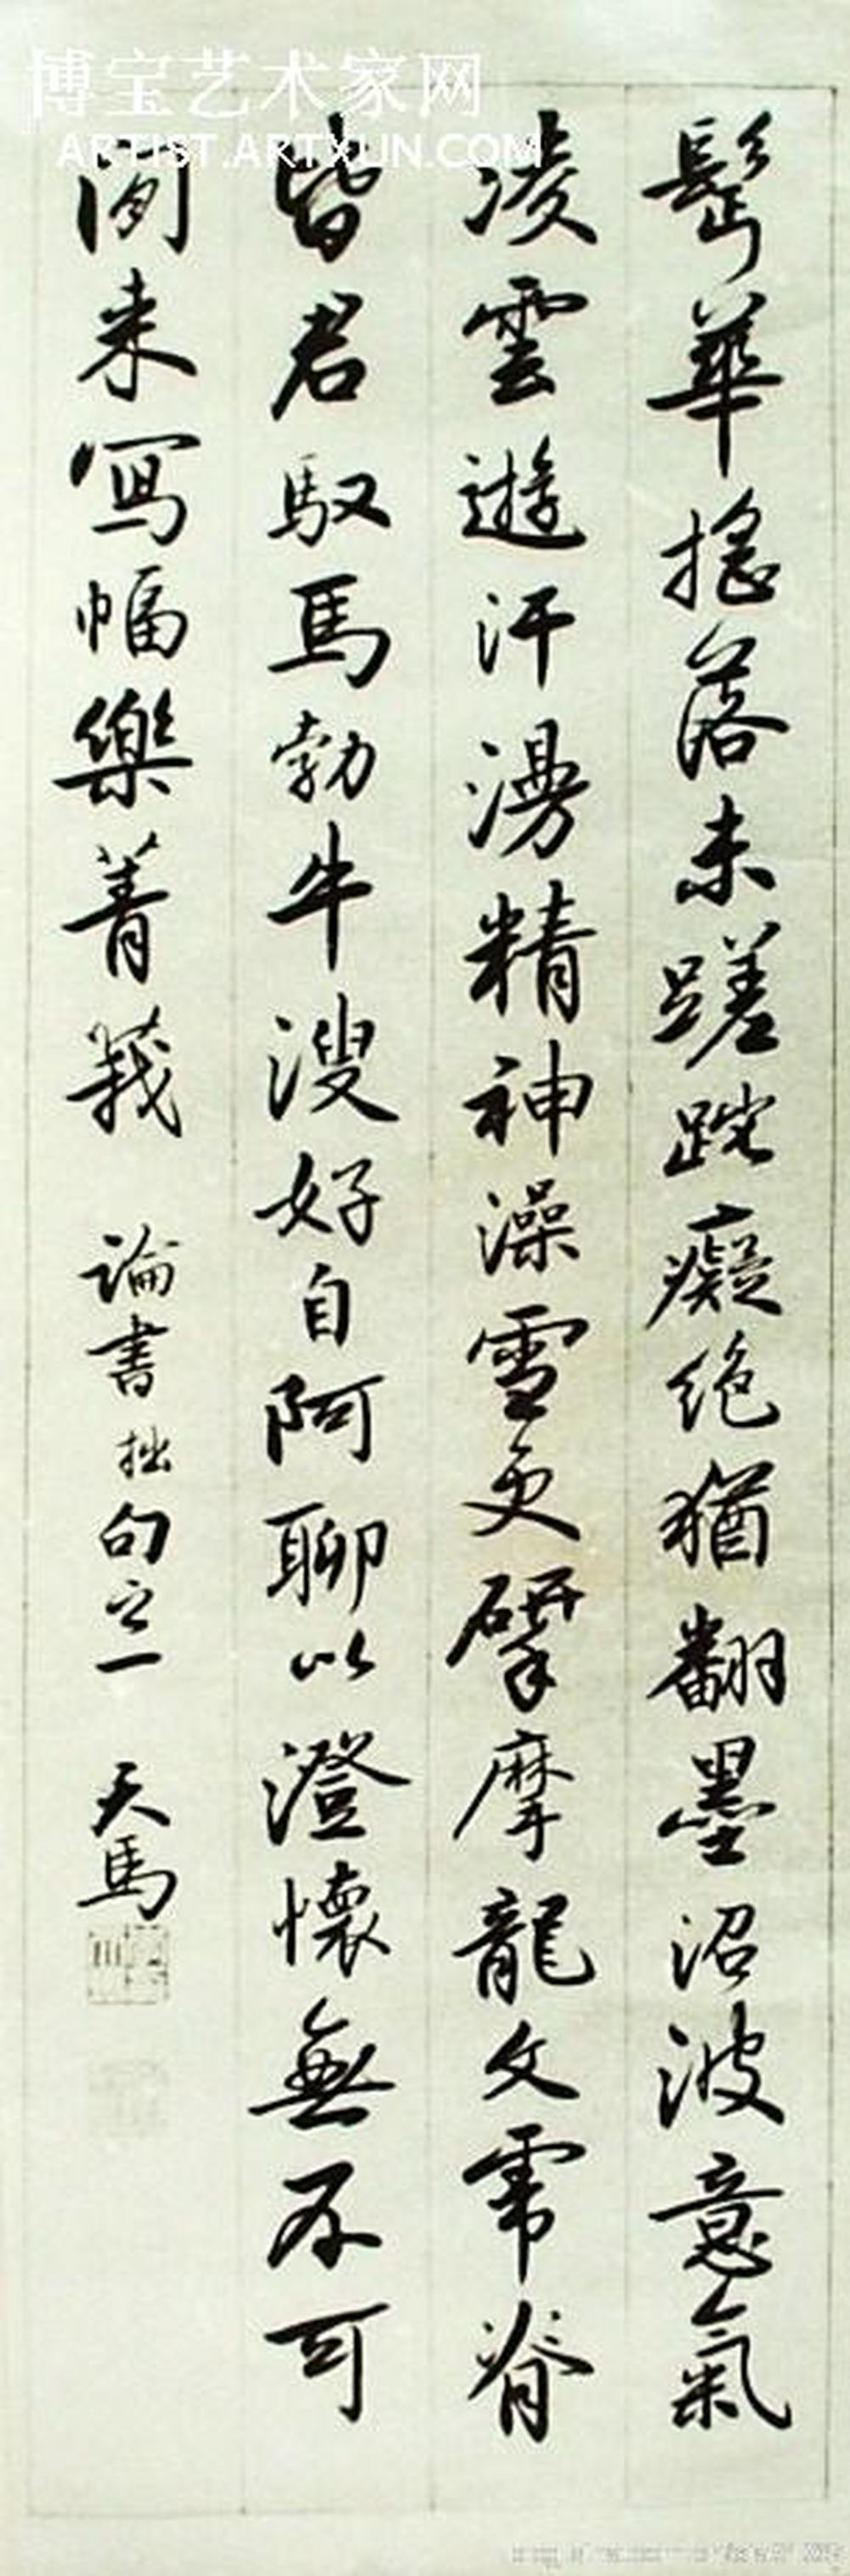 博宝艺术家网
ARTIST.ARTXUN.COM
髩華搖落未蹉跎癡絶猶翻墨沼波意氣
凌雲遊汗漫精神澡雪更摩龍文虎脊
皆君馭馬勃牛溲好自阿聊以澄懷無不可
閑來寫幅樂菁莪
論書拙句之一
天馬